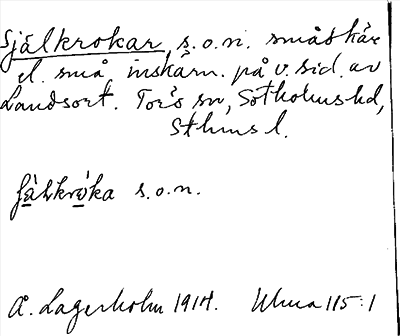 Själkrokar, s.o.n. småskär
el. små inskärn. på v. sid. av
Landsort. Torö sn, Sotholms hd,
Sthms l.
s.o.n.
Å. Lagerholm 1914. Uma 115:1